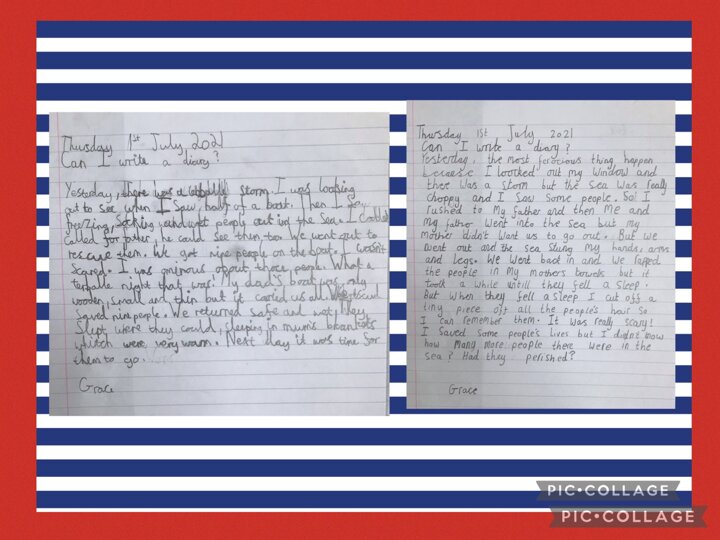 Thursday 1st July 2021
Can I write a diary?
Yesterday, there was a storm. I was looking
out to see when I saw half of a boat. Then I saw
freezing, soaking and wet people out in the Sea. I
called for father, he could see them, too. We went out to
rescue them. We got nine people on the boat. I wasn't
scared. I was about those people. What a
night that was. My dad's boat was only
wooden, small and thin but it us all
Saved nine people. We returned safe and wet. They
slept where they could, sleeping in mum's
which were very warm. Next day it was time for
them to go.
Grace
Thursday 1st July 2021
Can I write a diary?
Yesterday, the most ferocious thing happen
because I loocked out my window and
there was a storm but the sea was really
choppy and I saw some people. So! I
rushed to my father and then me and
my father went into the sea but my
mother didn't want us to go out. But we
went out and the sea stung my hands, arms
and legs. We went back in and we
the people in my mothers but it
toock a while untill they fell a sleep.
But when they fell a sleep I cut off a
tiny piece off all the people's hair so
I can remember them. It was really scary!
I saved some people's lives but I
how many more people there were in the
sea? Had they perished?
Grace
PIC•COLLAGE
PIC•COLLAGE